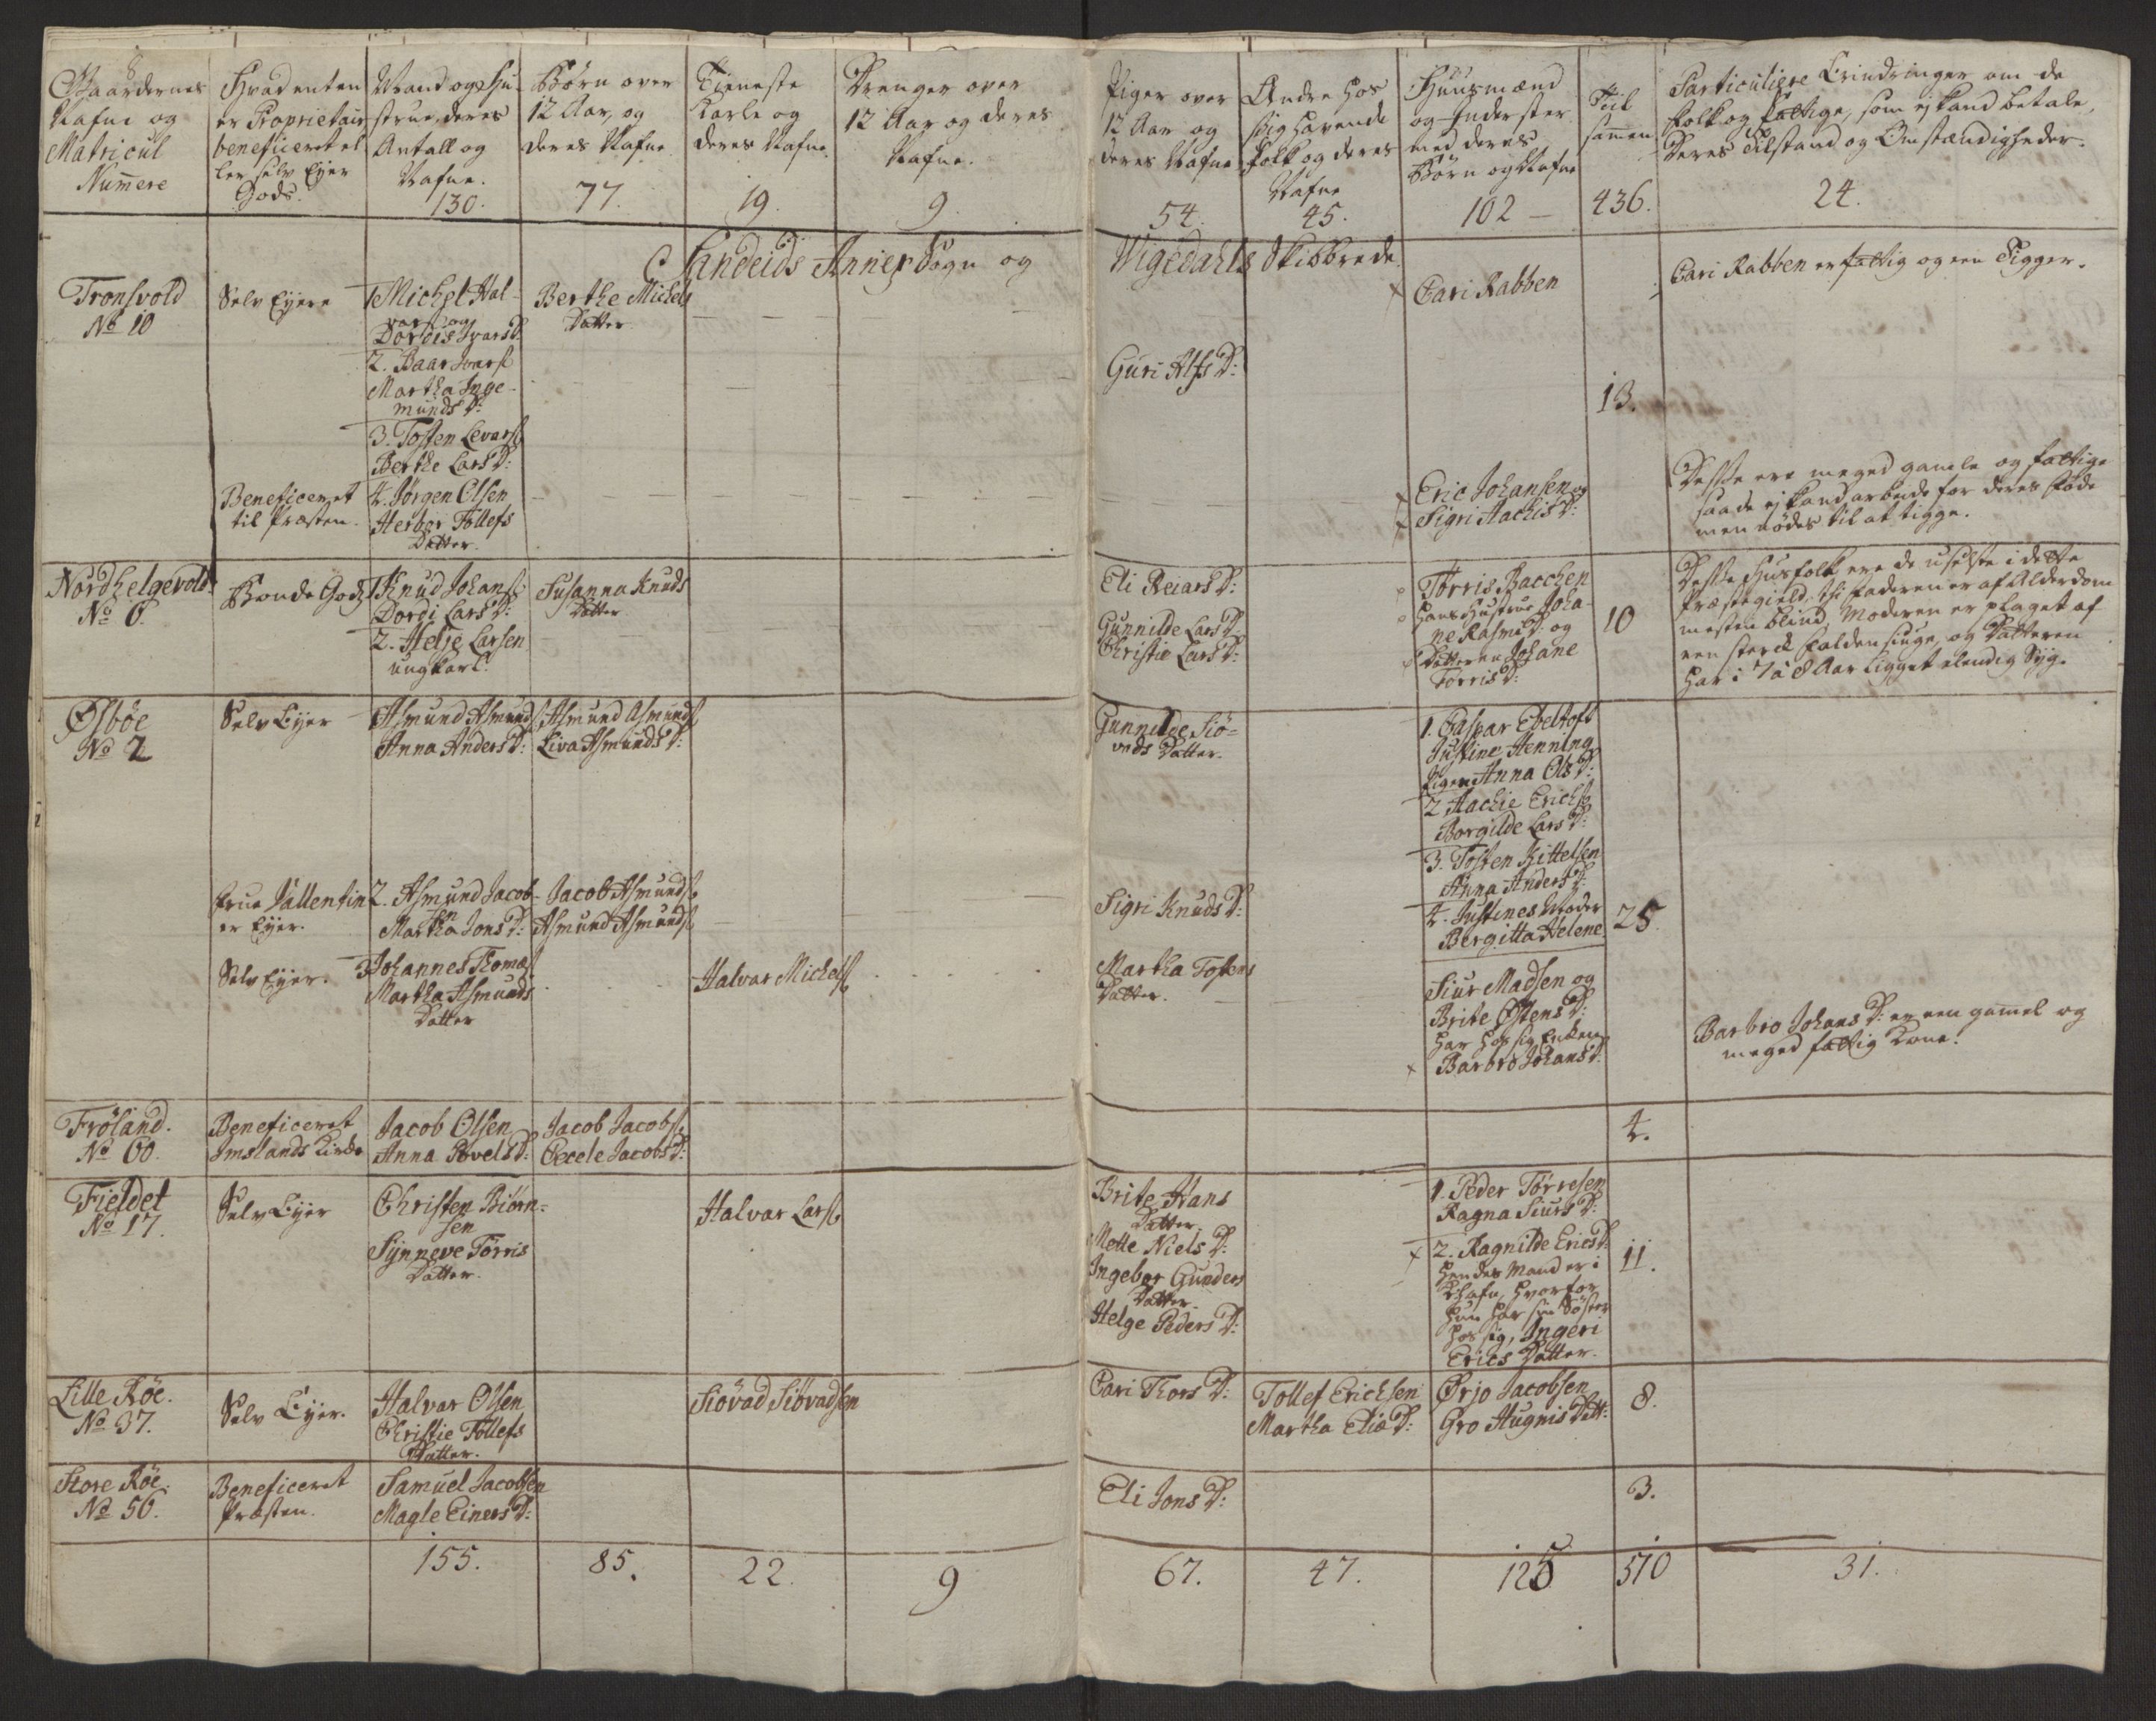 8
Gaardernes
Nafne og
Matricul
Numere
Hvad enten
er Proprietair
beneficeret el
ler selv Eyer
Gods.
Mand og Hu
strue, deres
Antall og
Nafne.
130.
Børn over
12 Aar, og
deres Nafne
77.
Tieneste
Karle og
deres Nafne.
19.
Drenger over
12 Aar og deres
Nafne.
9.
Piger over
12 Aar og
deres Nafne
54.
Andre hos
sig havende
folk og deres
Nafne
45.
Huusmænd
og Inderster
med deres
Børn og Nafne
102 —
Til
samen
436.
Particuliere Erindringer om de
folk og fattige, som ej kand betale,
deres Tilstand og Omstændigheder.
24.
Sandeids Annex Sogn og Wigedahls Skibbrede
Tronsvold
No 10
Selv Eyere
1 Michel Hal-
vars og
Dordis Ivars D:
2. Baar Ivars
Martha Inge-
munds D:
3. Tosten Levars
Berthe Lars D:
Berthe Michels
Datter
Guri Alfs D:
Cari Rabben
13.
Cari Rabben er fattig og een Tigger.
Beneficeret
til Præsten.
4. Jørgen Olsen
Herbor Tollefs
Datter.
Eric Johansen og
Sigri Aachis D:
Disse ere meged gamle og fattige
saa de ej kand arbeide for deres føde
men nødes til at tigge.
Nordhelgevold
No 6.
Bonde Gods
1 Knud Johans
Dordi Lars D:
2. Helje Larsen
ungkarl.
Susanna Knuds
Datter
Eli Reiars D:
Gunnilde Lars D
Christie Lars D:
Torris Bacchen
hans Hustrue Joha-
ne Rasmi D: og
Datteren Johane
Torris D:
10
Disse Huusfolk ere de uselste i dette
Præstegield, thi faderen er af Alderdom
mesten blind, Moderen er plaget af
een sterck faldensiuge, og Datteren
har i 7 à 8 Aar ligget elendig Syg.
Østbøe
No 2
Selv Eyer
Asmund Asmunds
Anna Anders D:
Asmund Asmunds
Liva Asmunds D:
Gunnilde Siø-
vads Datter.
1. Caspar Ebeltoft
Justine Henning
Pigen Anna Ols D:
2 Aachie Erichs
Borgilde Lars D:
3. Tosten Kittelsen
Anna Anders D:
4. Justines Moder
Bergitta Helene
25
Frue Vallentin
er Eyer.
2. Asmund Jacob-
sen
Martha Jons D:
Jacob Asmunds
Asmund Asmunds
Sigri Knuds D:
Selv Eyer.
3 Johannes Thomæs
Martha Asmunds
Datter
Halvar Michels
Martha Tostens
Datter.
Siur Madsen og
Brite Østens D:
har hos sig Enken
Barbro Johans D:
Barbro Johans D: er een gamel og
meged fattig Kone.
Frøland.
No 60.
Beneficeret
Imslands Kirke
Jacob Olsen
Anna Povels D:
Jacob Jacobs
Cecele Jacobs D:
4.
Fieldet
No 17.
Selv Eyer
Christen Biørn-
sen
Synneve Torris
Datter.
Halvar Lars
Brite Hans
Datter
Mette Niels D:
Ingebor Gunders
Datter.
Helge Peders D:
1. Peder Tørresen
Ragna Siurs D:
2. Ragnilde Erics D
hendes Mand er i
Khafn, hvorfor
hun har sin Søster
hos sig, Ingeri
Erics Datter.
11.
Lille Røe.
No 37.
Selv Eyer.
Halvar Olsen
Christie Tollefs
Datter.
Siøvad Siøvadsen
Cari Thors D:
Tollef Erichsen
Martha Eliæ D:
Ørjo Jacobsen
Gro Augnis Datt:
8.
Store Røe.
No 56.
Beneficeret
Præsten.
Samuel Jacobsen
Magle Einers D:
Eli Jons D:
3.
155.
85.
22.
9
67.
47.
125
510
31.